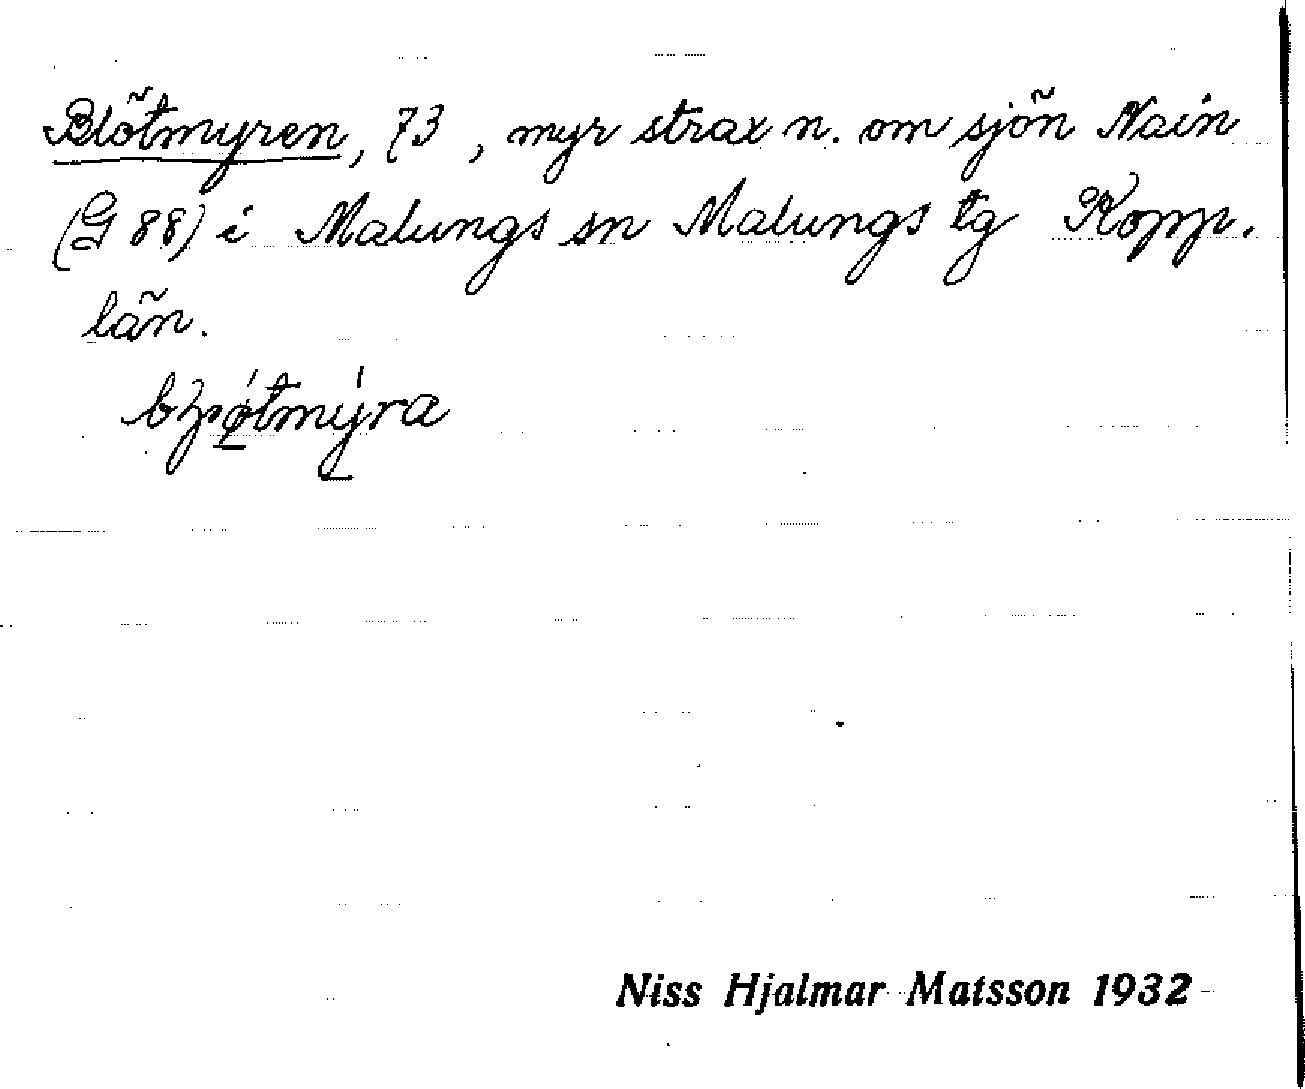 Blötmyren, 73, myr strax n. om sjön Nain
(G 88) i Malungs sn Malungs tg Kopp.
län.
Niss Hjalmar Matsson 1932